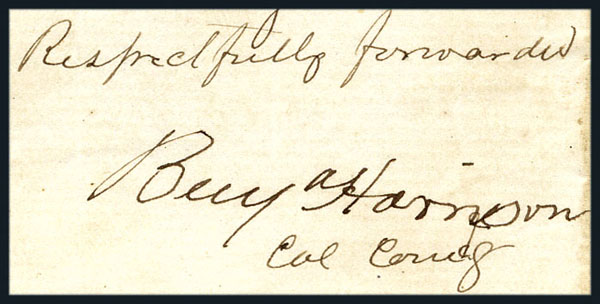 Respectfully forwarded
Benj a Harrison
Col Comg